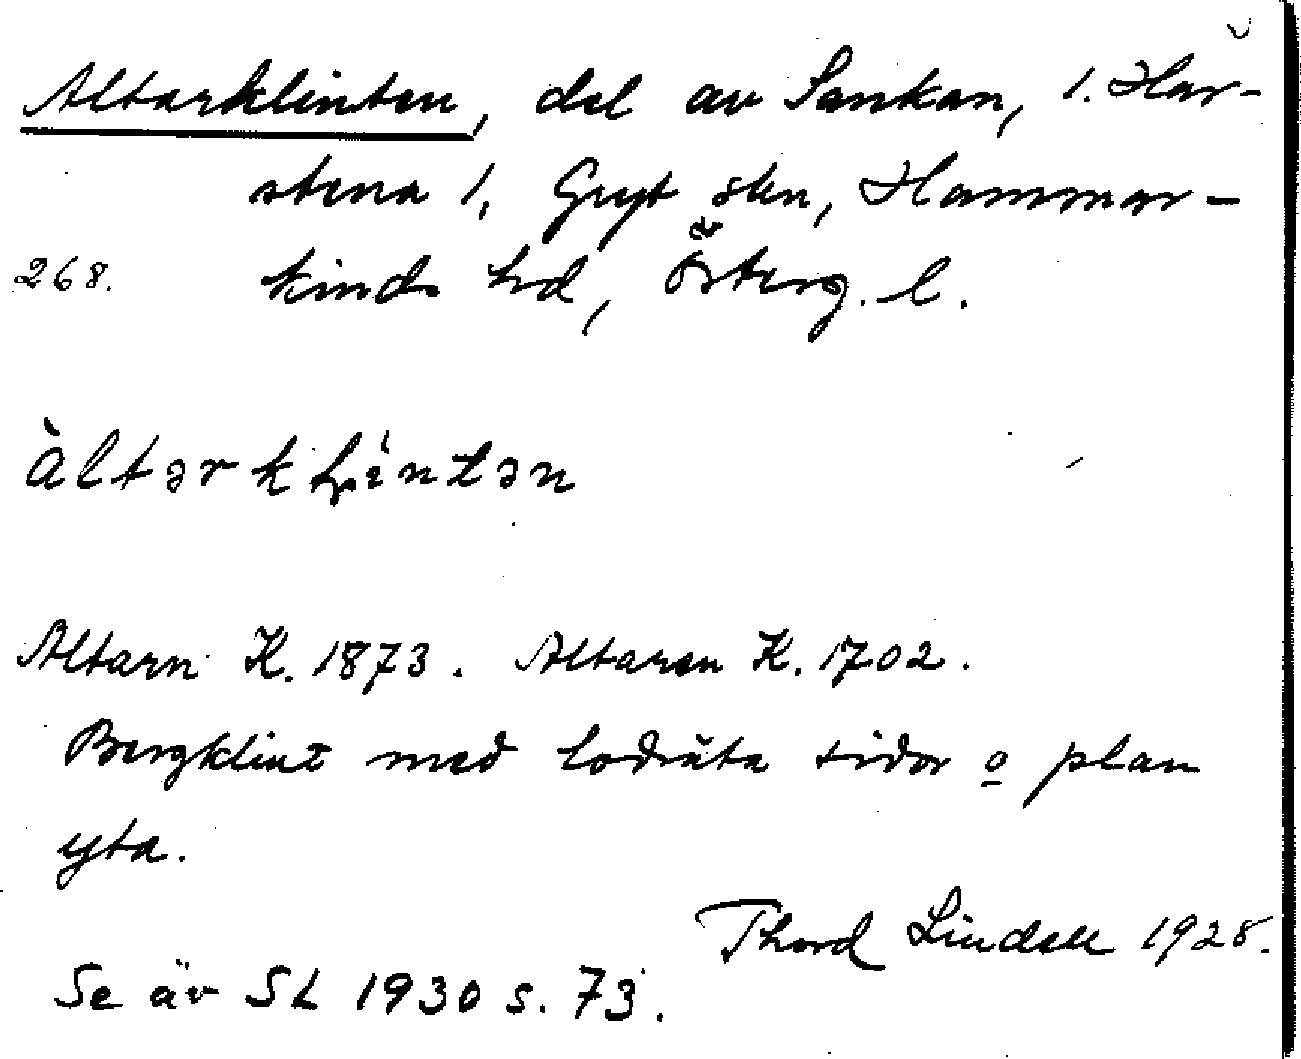 Altarklinten, del av Sankan, 1. Har-
stena 1, Gryt skn, Hammar-
268. kinds hd, Österg. l.
àltərkḷìntən
Altarn K. 1873. Altaren K. 1702.
Bergklint med lodräta sidor o plan
yta.
Thord Lindell 1928.
Se äv SL 1930 s. 73.